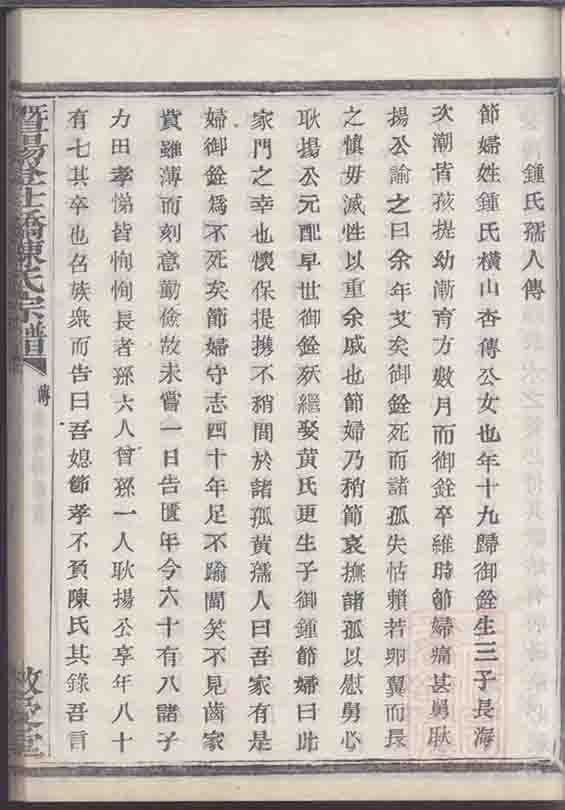 鍾氏孺人傳
節婦姓鍾氏橫山杏傳公女也年十九歸御銓生三子長海
次潮皆孩提幼漸育方數月而御銓卒維時節婦痛甚舅耿
揚公諭之曰余年艾矣御銓死而諸孤失怙賴若卵翼而長
之慎毋滅性以重余戚也節婦乃稍節哀撫諸孤以慰舅心
耿揚公元配早世御銓殀繼娶黃氏更生子御鍾節婦曰此
家門之幸也懷保提攜不稍間於諸孤黃孺人曰吾家有是
婦御銓爲不死矣節婦守志四十年足不踰閫笑不見齒家
貲雖薄而刻意勤儉故未嘗一日告匱年今六十有八諸子
力田孝悌皆恂恂長者孫六人曾孫一人耿揚公享年八十
有七其卒也名族衆而告曰吾媳節孝不負陳氏其錄吾言
暨陽 橋陳氏宗譜
傳